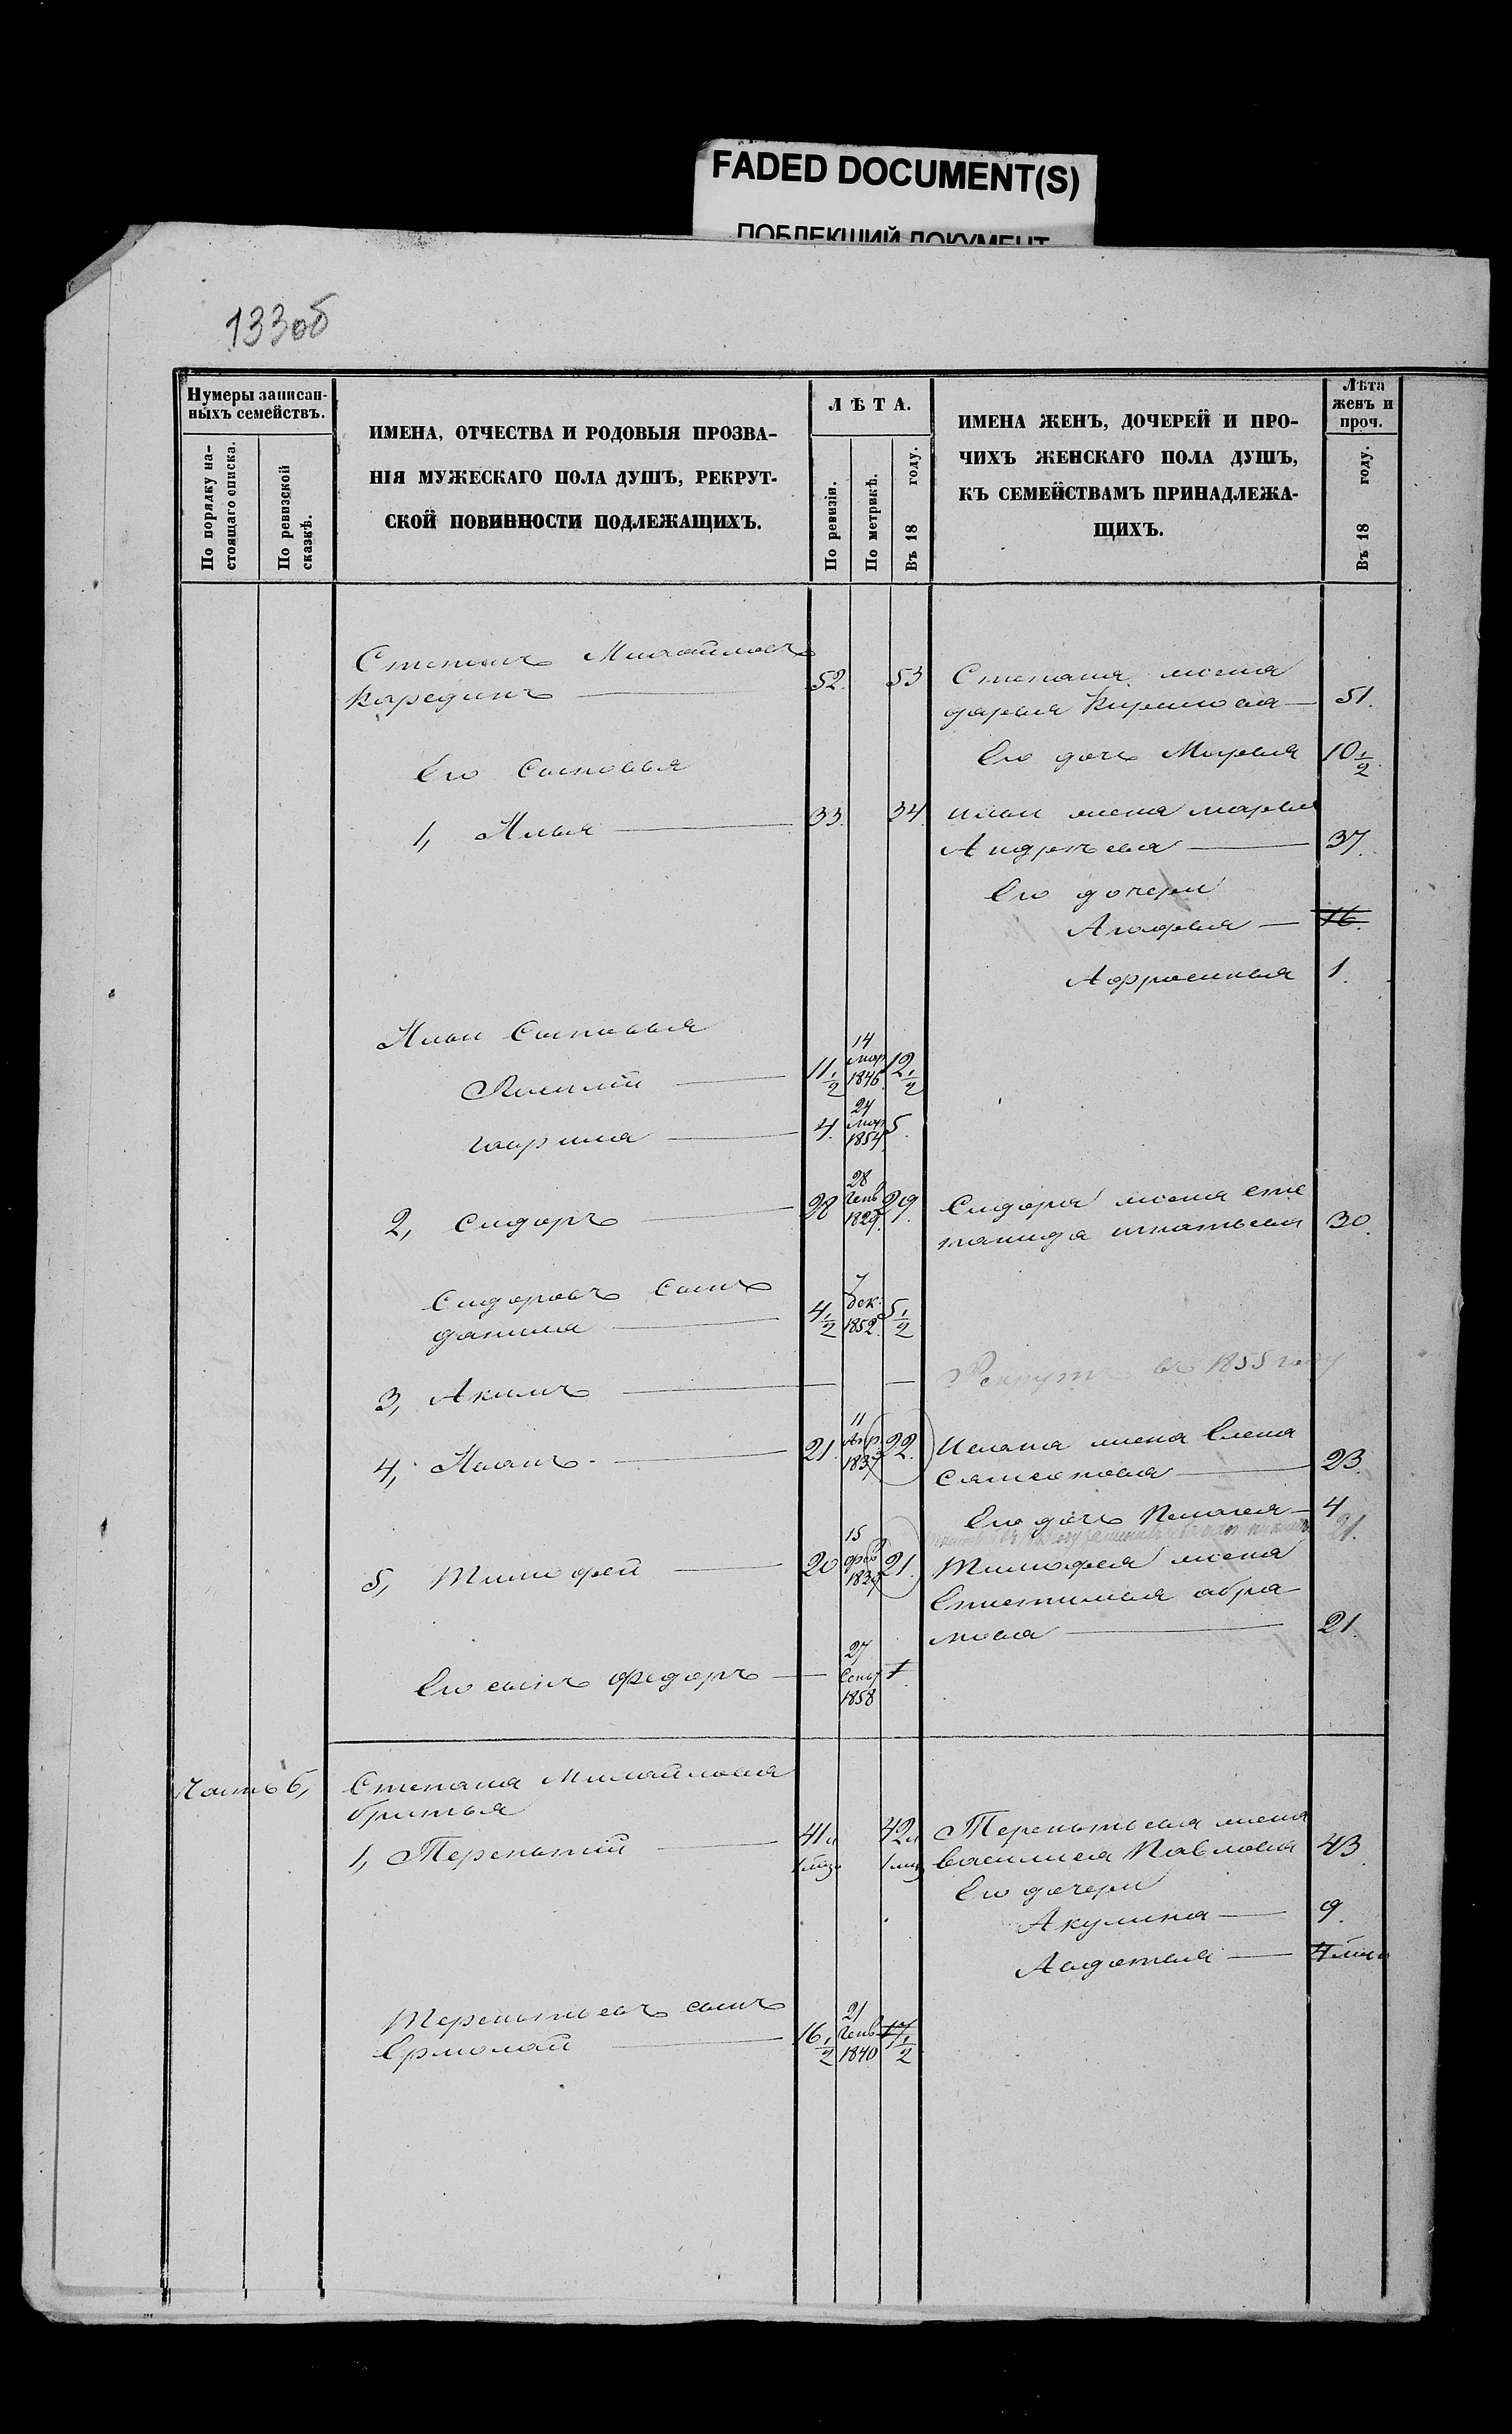 FADED DOCUMENT(S)
ПОБЛЕКШИЙ ДОКУМЕНТ
133об
Нумеры записан-
ныхъ семействъ.
По порядку на-
стоящаго списка.
По ревизской
сказкѣ.
ИМЕНА, ОТЧЕСТВА И РОДОВЫЯ ПРОЗВА-
НІЯ МУЖЕСКАГО ПОЛА ДУШЪ, РЕКРУТ-
СКОЙ ПОВИННОСТИ ПОДЛЕЖАЩИХЪ.
ЛѢТА.
По ревизіи.
По метрикѣ.
Въ 18 году.
ИМЕНА ЖЕНЪ, ДОЧЕРЕЙ И ПРО-
ЧИХЪ ЖЕНСКАГО ПОЛА ДУШЪ,
КЪ СЕМЕЙСТВАМЪ ПРИНАДЛЕЖА-
ЩИХЪ.
Лѣта
женъ и
проч.
Въ 18 году.
Степанъ Михайловъ
52. 53 Степана жена
дарья Кирилова 51.
Его Сыновья
Его дочь Марья 10 1/2
1, Илья 33. 34 Ильи жена марья
Андреева 37.
Его дочери
16.
Афросинья 1.
Ильи Сыновья
11 1/2 14 мар 1846 12 1/2
гаврила 4. 24 мар 1854 5.
2, Сидоръ 28 28 Генв 1829. 29 Сидора жена сте
панида игнатьева 30.
Сидоровъ Сынъ
данила 4 1/2 7 дек. 1852. 5 1/2
3, Акимъ Рекрутъ въ 1855 году
4, Иванъ 21. 11 Апр. 22. Ивана жена Елена
Самсонова 23.
Его дочь Пелагея 4
21.
5, Тимофей 20 15 фев 21. Тимофея жена
Епистимья абра
мова 21.
Его сынъ Федоръ 27 Сент 1858 1
Часть 6, Степана Михайлова
братья
1, Терентий 41 и 42 и Терентьева жена
василиса Павлова 43
Его дочери
Акулина 9.
Авдотья 4
Терентьевъ сынъ
Ермолай 16 1/2 21 Генв 1840 17 1/2